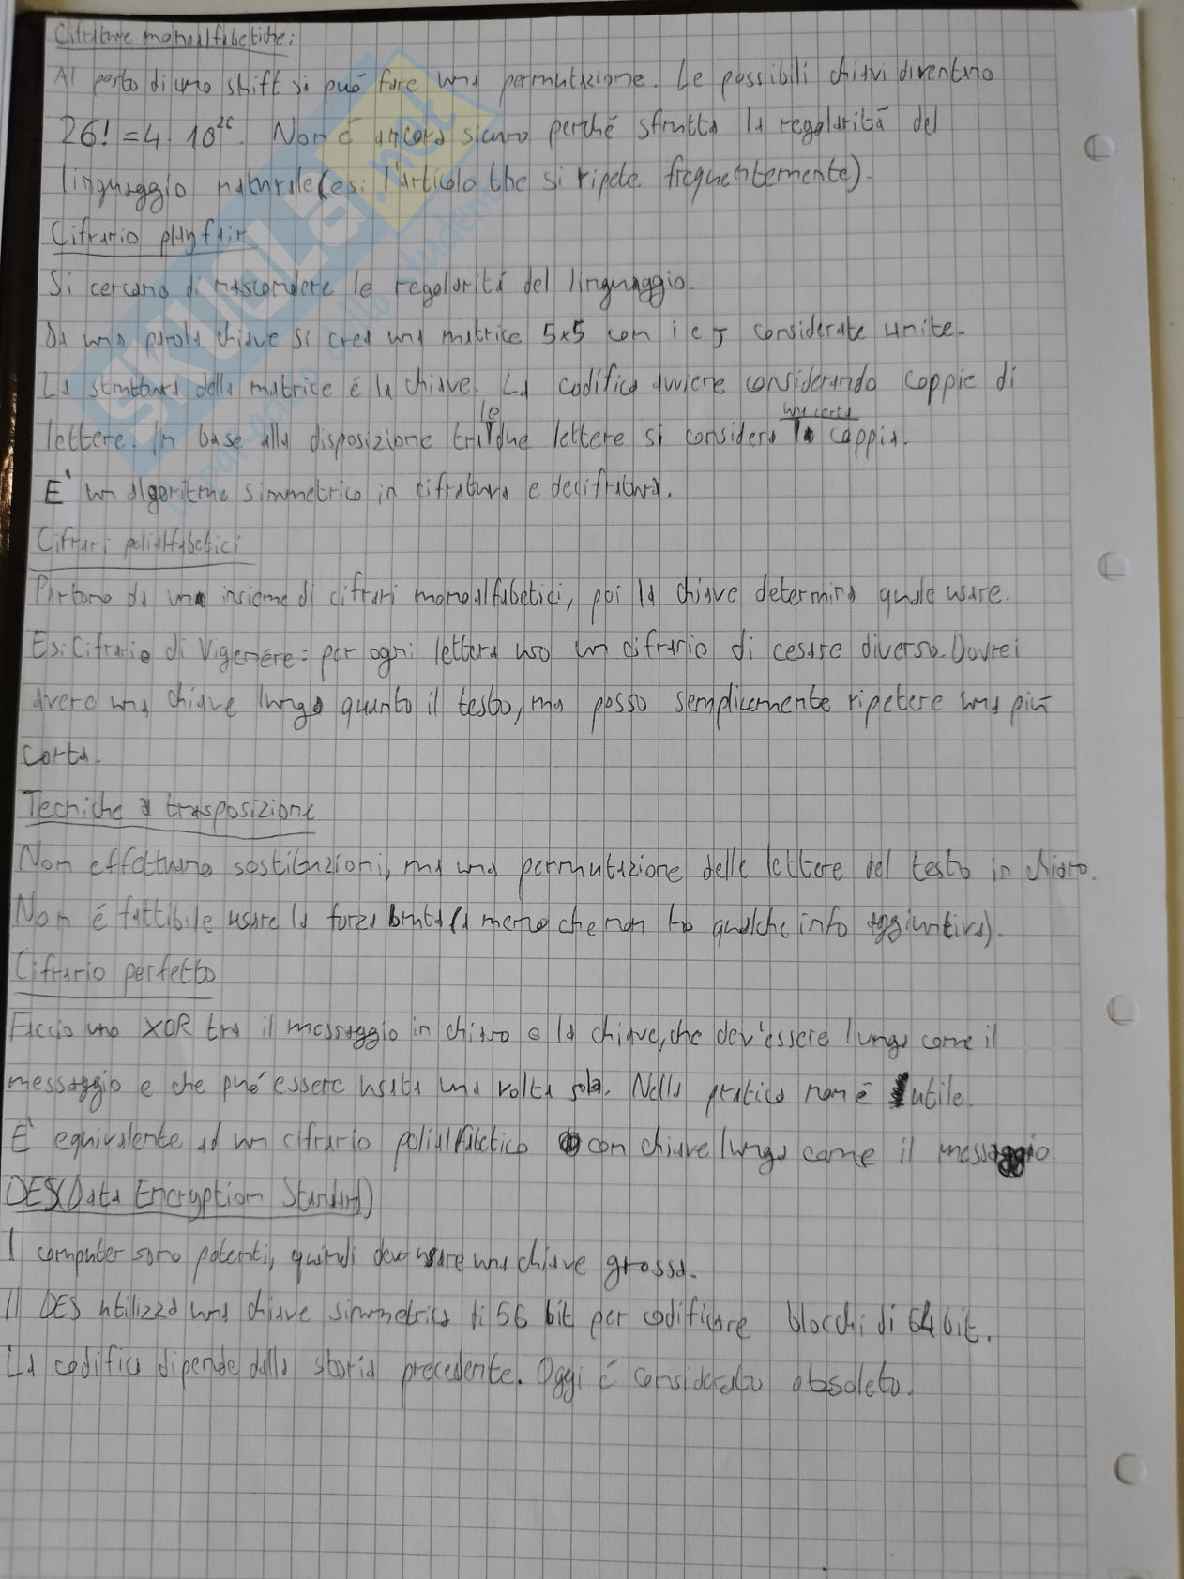 Cifrature monoalfabetiche:
Al posto di uno shift si può fare una permutazione. Le possibili chiavi diventano
26! = 4 · 10^26. Non è ancora sicuro perché sfrutta la regolarità del
linguaggio naturale (es: l'articolo the si ripete frequentemente).
Cifrario playfair
Si cercano di nascondere le regolarità del linguaggio.
Da una parola chiave si crea una matrice 5x5 con i e J considerate unite.
La struttura della matrice é la chiave. La codifica avviene considerando coppie di
lettere. In base alla disposizione tra le due lettere si considera una certa coppia.
E' un algoritmo simmetrico in cifratura e decifratura.
Cifrari polialfabetici
Partono da un insieme di cifrari monoalfabetici, poi la chiave determina quale usare.
Es: Cifrario di Vigenere: per ogni lettera uso un cifrario di cesare diverso. Dovrei
avere una chiave lunga quanto il testo, ma posso semplicemente ripetere una più
corta.
Tecniche a trasposizione
Non effettuano sostituzioni, ma una permutazione delle lettere del testo in chiaro.
Non é fattibile usare la forza bruta (a meno che non ho qualche info aggiuntiva).
Cifrario perfetto
Faccio uno XOR tra il messaggio in chiaro e la chiave, che dev'essere lunga come il
messaggio e che puó essere usata una volta sola. Nella pratica non é utile.
E' equivalente ad un cifrario polialfabetico con chiave lunga come il messaggio
DES (Data Encryption Standard)
I computer sono potenti, quindi devo usare una chiave grossa.
Il DES utilizza una chiave simmetrica di 56 bit per codificare blocchi di 64 bit.
La codifica dipende dalla storia precedente. Oggi é considerato obsoleto.
SKUOLA.net